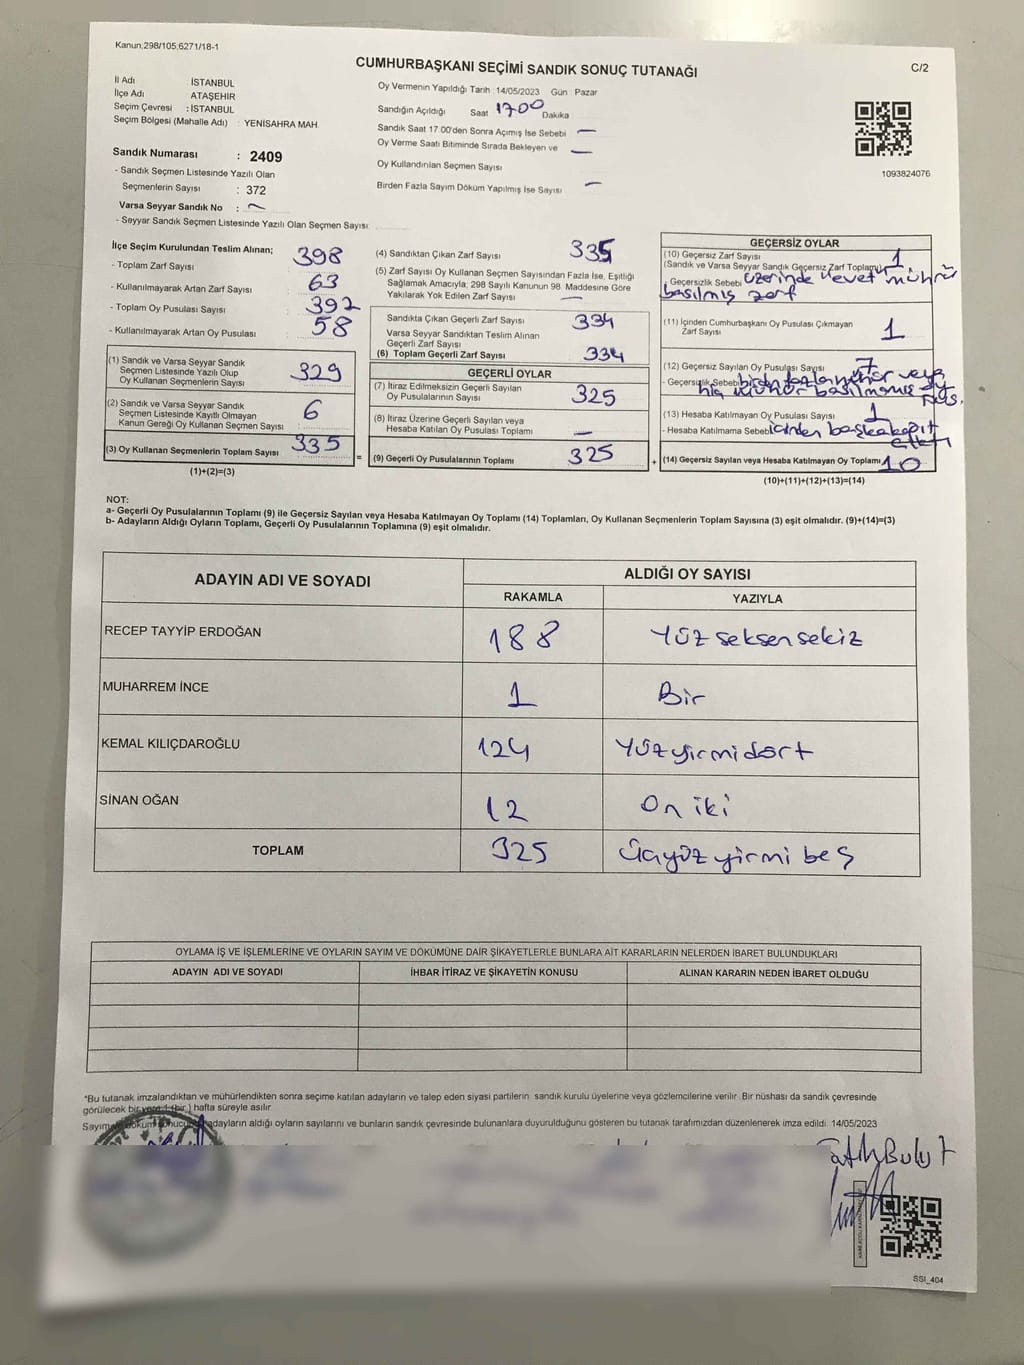 Kanun;298/105;6271/18-1
CUMHURBAŞKANI SEÇİMİ SANDIK SONUÇ TUTANAĞI
C/2
İl Adı : İSTANBUL
İlçe Adı : ATAŞEHİR
Seçim Çevresi : İSTANBUL
Seçim Bölgesi (Mahalle Adı) : YENİSAHRA MAH.
Oy Vermenin Yapıldığı Tarih :14/05/2023 Gün : Pazar
Sandığın Açıldığı Saat 17 00 Dakika
Sandık Saat 17.00'den Sonra Açımış İse Sebebi —
Oy Verme Saati Bitiminde Sırada Bekleyen ve —
Oy Kullandırılan Seçmen Sayısı
Birden Fazla Sayım Döküm Yapılmış İse Sayısı —
1093824076
Sandık Numarası : 2409
- Sandık Seçmen Listesinde Yazılı Olan
Seçmenlerin Sayısı : 372
Varsa Seyyar Sandık No : —
- Seyyar Sandık Seçmen Listesinde Yazılı Olan Seçmen Sayısı:
İlçe Seçim Kurulundan Teslim Alınan;
- Toplam Zarf Sayısı 398
- Kullanılmayarak Artan Zarf Sayısı : 63
- Toplam Oy Pusulası Sayısı : 392
- Kullanılmayarak Artan Oy Pusulası : 58
(1) Sandık ve Varsa Seyyar Sandık
Seçmen Listesinde Yazılı Olup
Oy Kullanan Seçmenlerin Sayısı : 329
(2) Sandık ve Varsa Seyyar Sandık
Seçmen Listesinde Kayıtlı Olmayan
Kanun Gereği Oy Kullanan Seçmen Sayısı : 6
(3) Oy Kullanan Seçmenlerin Toplam Sayısı : 335
(1)+(2)=(3)
(4) Sandıktan Çıkan Zarf Sayısı 335
(5) Zarf Sayısı Oy Kullanan Seçmen Sayısından Fazla İse, Eşitliği
Sağlamak Amacıyla; 298 Sayılı Kanunun 98. Maddesine Göre
Yakılarak Yok Edilen Zarf Sayısı —
Sandıkta Çıkan Geçerli Zarf Sayısı 334
Varsa Seyyar Sandıktan Teslim Alınan
Geçerli Zarf Sayısı
(6) Toplam Geçerli Zarf Sayısı 334
GEÇERLİ OYLAR
(7) İtiraz Edilmeksizin Geçerli Sayılan
Oy Pusulalarının Sayısı 325
(8) İtiraz Üzerine Geçerli Sayılan veya
Hesaba Katılan Oy Pusulası Toplamı —
= (9) Geçerli Oy Pusulalarının Toplamı 325 +
GEÇERSİZ OYLAR
(10) Geçersiz Zarf Sayısı 1
(Sandık ve Varsa Seyyar Sandık Geçersiz Zarf Toplamı)
- Geçersizlik Sebebi üzerinde evet mührü
basılmış zarf
(11) İçinden Cumhurbaşkanı Oy Pusulası Çıkmayan
Zarf Sayısı 1
(12) Geçersiz Sayılan Oy Pusulası Sayısı 7
- Geçersizlik Sebebi birden fazla mühür veya
hiç mühür basılmamış oy pus.
(13) Hesaba Katılmayan Oy Pusulası Sayısı 1
- Hesaba Katılmama Sebebi içinden başka kağıt
(14) Geçersiz Sayılan veya Hesaba Katılmayan Oy Toplamı 10
(10)+(11)+(12)+(13)=(14)
NOT:
a- Geçerli Oy Pusulalarının Toplamı (9) ile Geçersiz Sayılan veya Hesaba Katılmayan Oy Toplamı (14) Toplamları, Oy Kullanan Seçmenlerin Toplam Sayısına (3) eşit olmalıdır. (9)+(14)=(3)
b- Adayların Aldığı Oyların Toplamı, Geçerli Oy Pusulalarının Toplamına (9) eşit olmalıdır.
ADAYIN ADI VE SOYADI
ALDIĞI OY SAYISI
RAKAMLA YAZIYLA
RECEP TAYYİP ERDOĞAN 188 Yüz seksen sekiz
MUHARREM İNCE 1 Bir
KEMAL KILIÇDAROĞLU 124 Yüz yirmi dört
SİNAN OĞAN 12 On iki
TOPLAM 325 Üçyüz yirmi beş
OYLAMA İŞ VE İŞLEMLERİNE VE OYLARIN SAYIM VE DÖKÜMÜNE DAİR ŞİKAYETLERLE BUNLARA AİT KARARLARIN NELERDEN İBARET BULUNDUKLARI
ADAYIN ADI VE SOYADI İHBAR İTİRAZ VE ŞİKAYETİN KONUSU ALINAN KARARIN NEDEN İBARET OLDUĞU
*Bu tutanak imzalandıktan ve mühürlendikten sonra seçime katılan adayların ve talep eden siyasi partilerin sandık kurulu üyelerine veya gözlemcilerine verilir. Bir nüshası da sandık çevresinde
görülecek bir yere 1 (bir) hafta süreyle asılır.
Sayım ve döküm sonucunda adayların aldığı oyların sayılarını ve bunların sandık çevresinde bulunanlara duyurulduğunu gösteren bu tutanak tarafımızdan düzenlenerek imza edildi. 14/05/2023
Fatih Bulut
SSİ_404